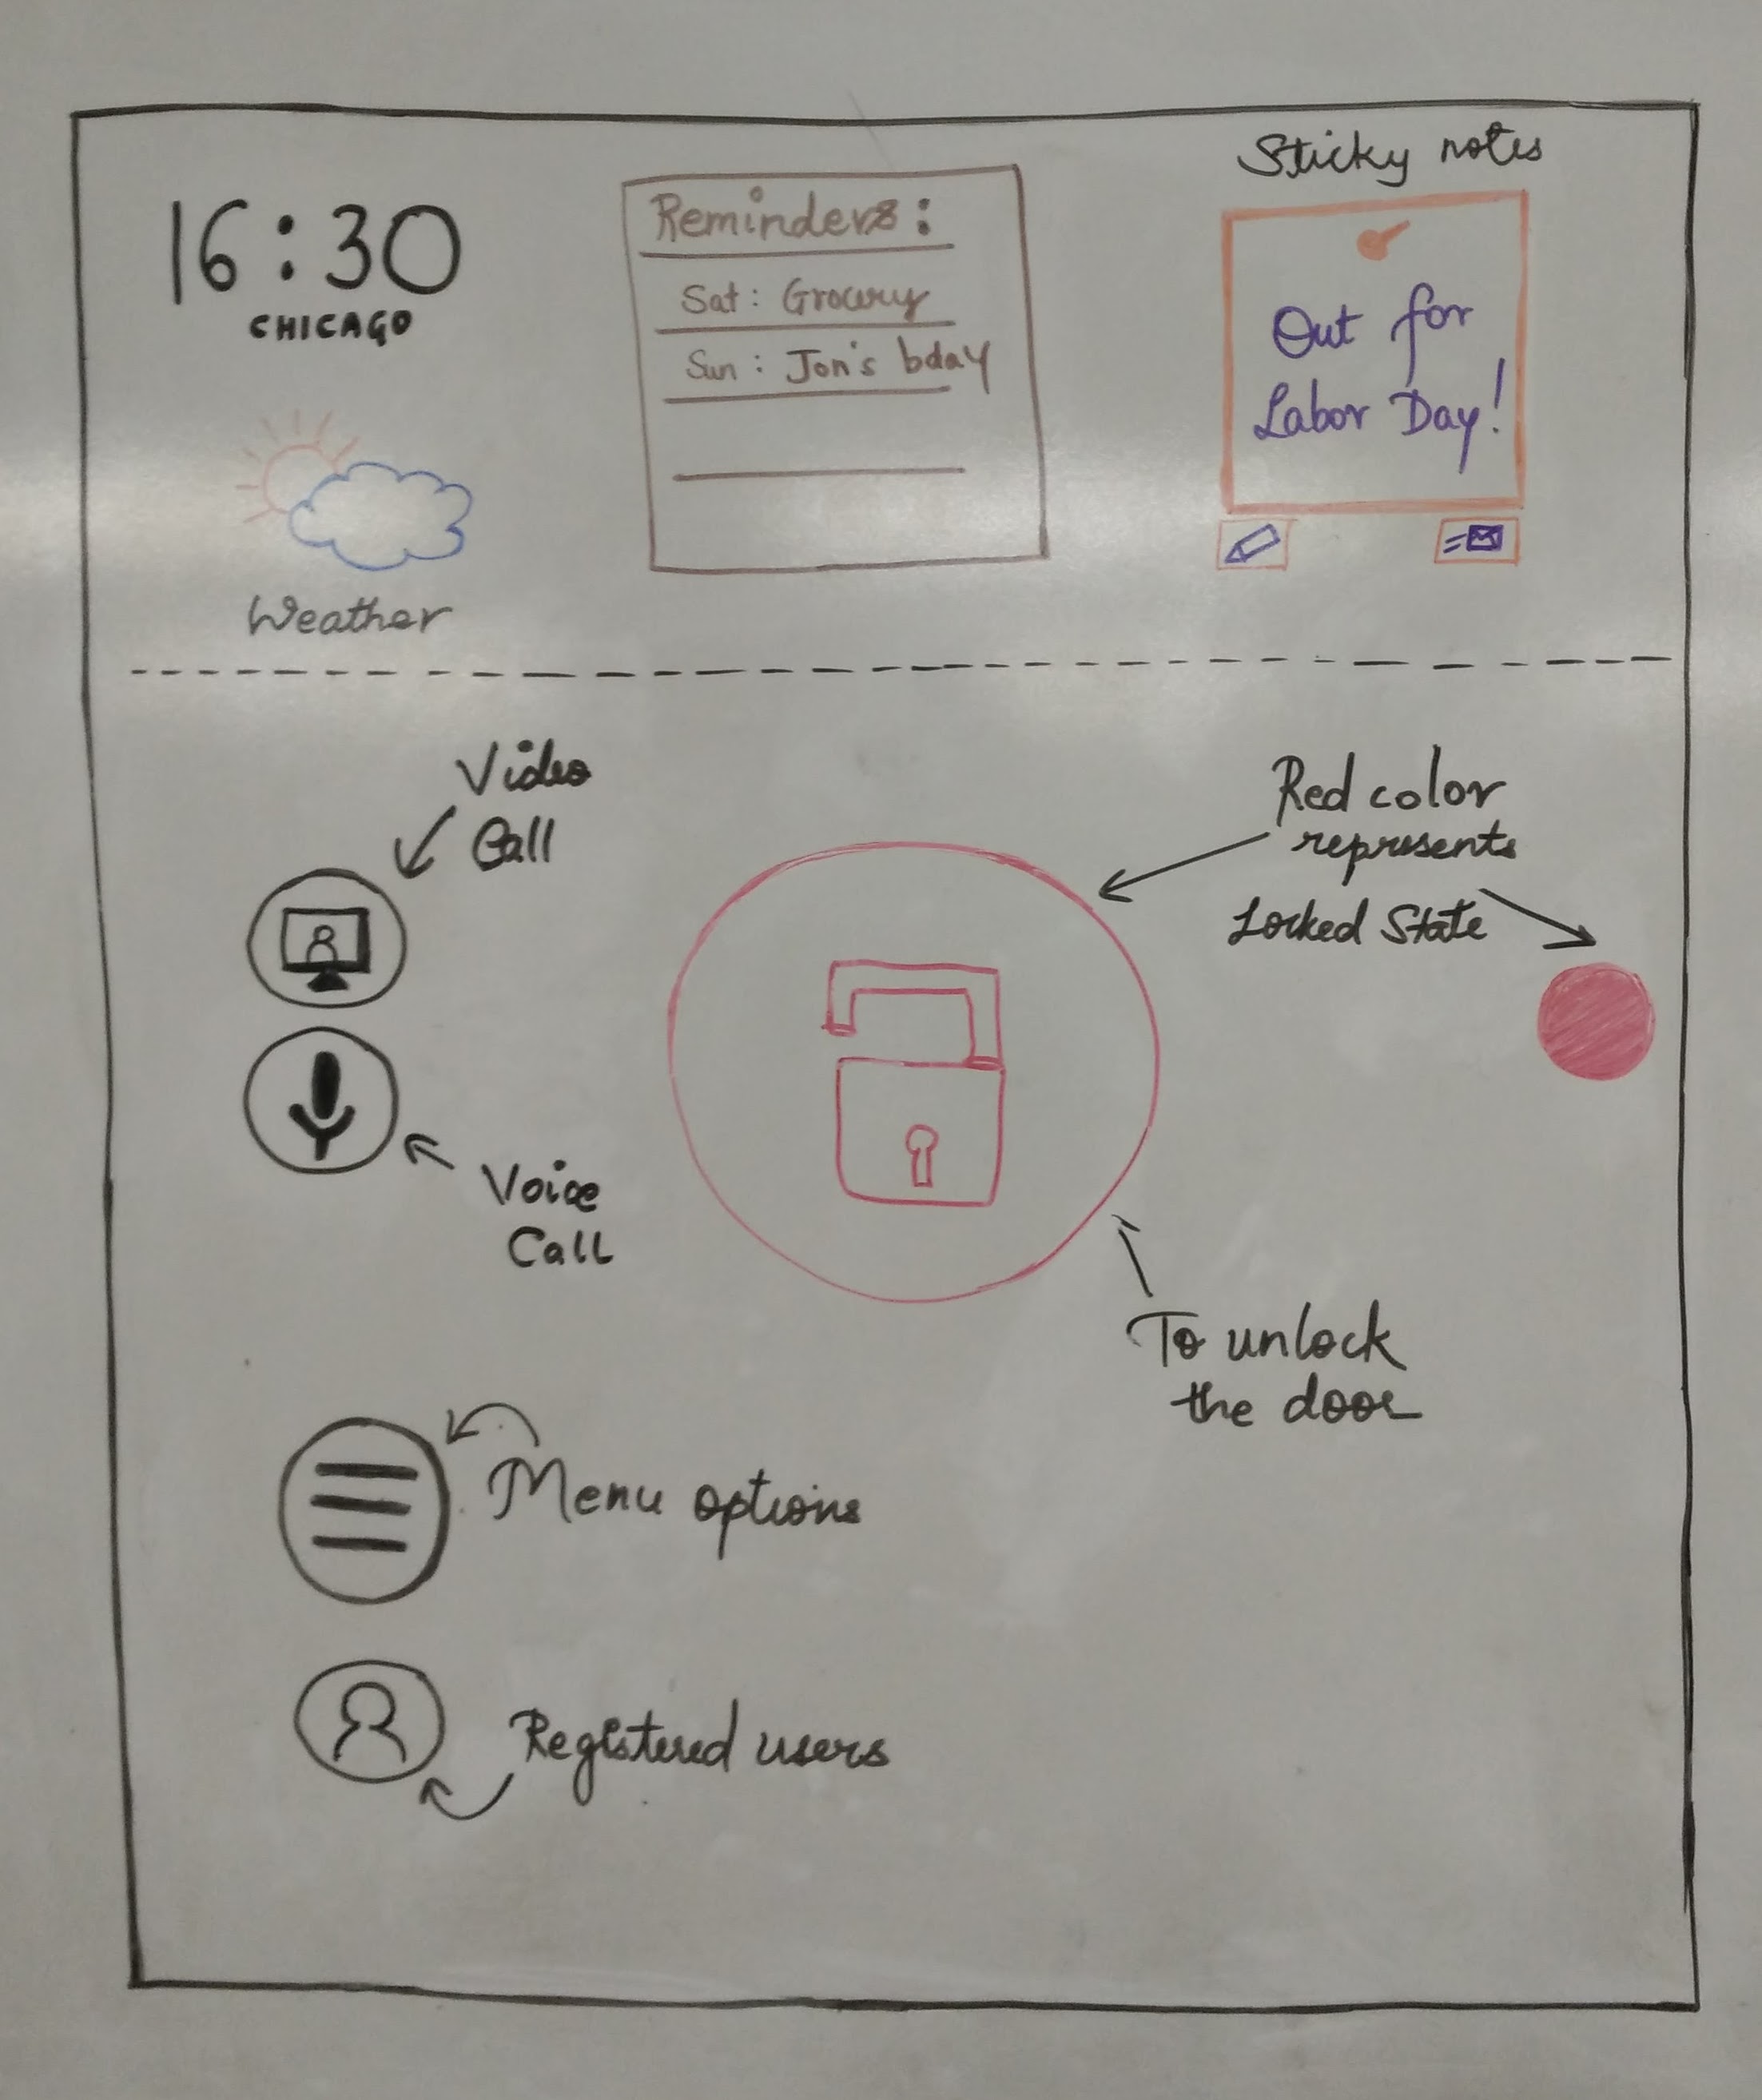 16:30
CHICAGO
Weather
Reminders:
Sat: Grocery
Sun: Jon's bday
Sticky notes
Out for
Labor Day!
Video
Call
Voice
Call
Red color
represents
Locked State
To unlock
the door
Menu options
Registered users